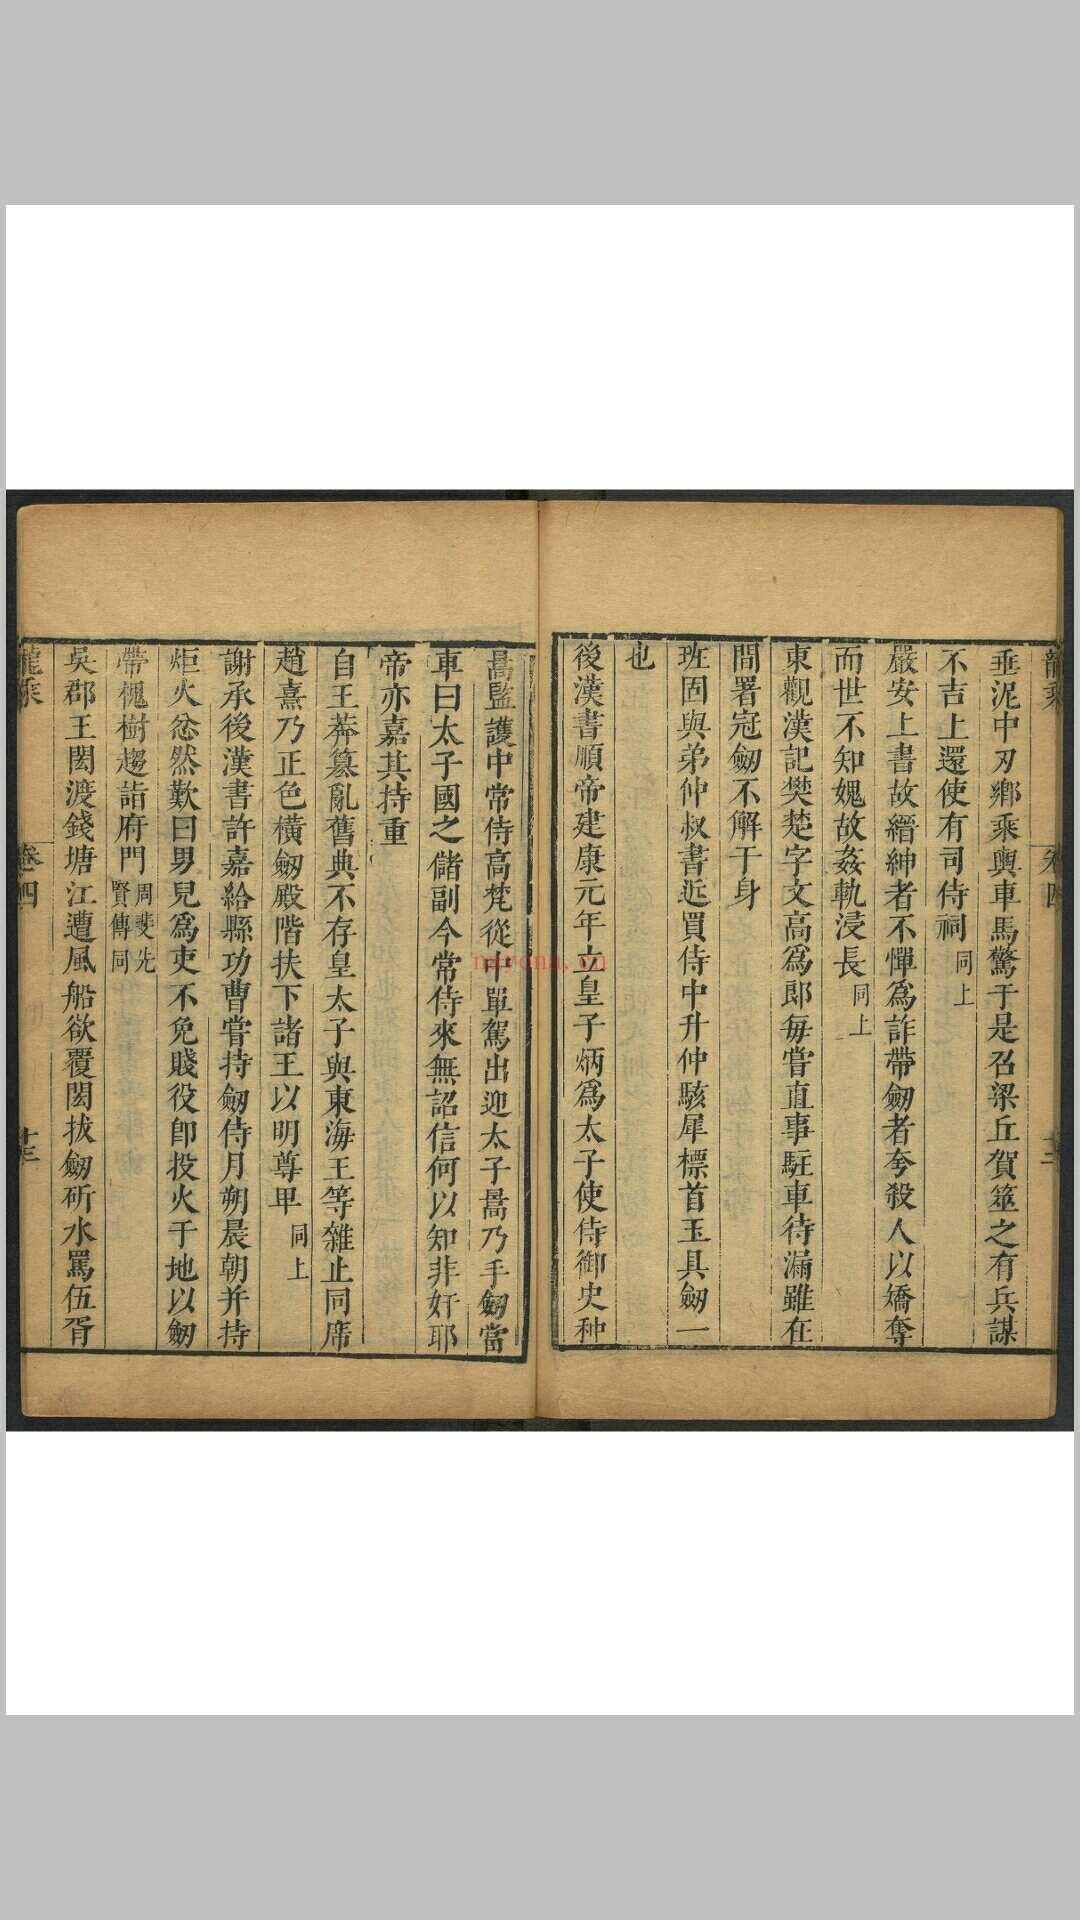 垂泥中刃鄉乘輿車馬驚于是召梁丘賀筮之有兵謀
不吉上還使有司侍祠同上
嚴安上書故縉紳者不憚爲詐帶劒者夸殺人以矯奪
而世不知媿故姦軌浸長同上
東觀漢記樊楚字文高爲郎每嘗直事駐車待漏雖在
間署冠劒不解于身
班固與弟仲叔書近買侍中升仲駭犀標首玉具劒一
也
後漢書順帝建康元年立皇子炳爲太子使侍御史种
暠監護中常侍高梵從中單駕出迎太子暠乃手劒當
車曰太子國之儲副今常侍來無詔信何以知非奸耶
帝亦嘉其持重
自王莽篡亂舊典不存皇太子與東海王等雜止同席
趙熹乃正色橫劒殿階扶下諸王以明尊卑同上
謝承後漢書許嘉給縣功曹嘗持劒侍月朔晨朝并持
炬火忿然歎曰男兒爲吏不免賤役卽投火于地以劒
帶槐樹趨詣府門周斐先賢傳同
吳郡王閎渡錢塘江遭風船欲覆閎拔劒斫水罵伍胥
卷四
十三
nayona.cn